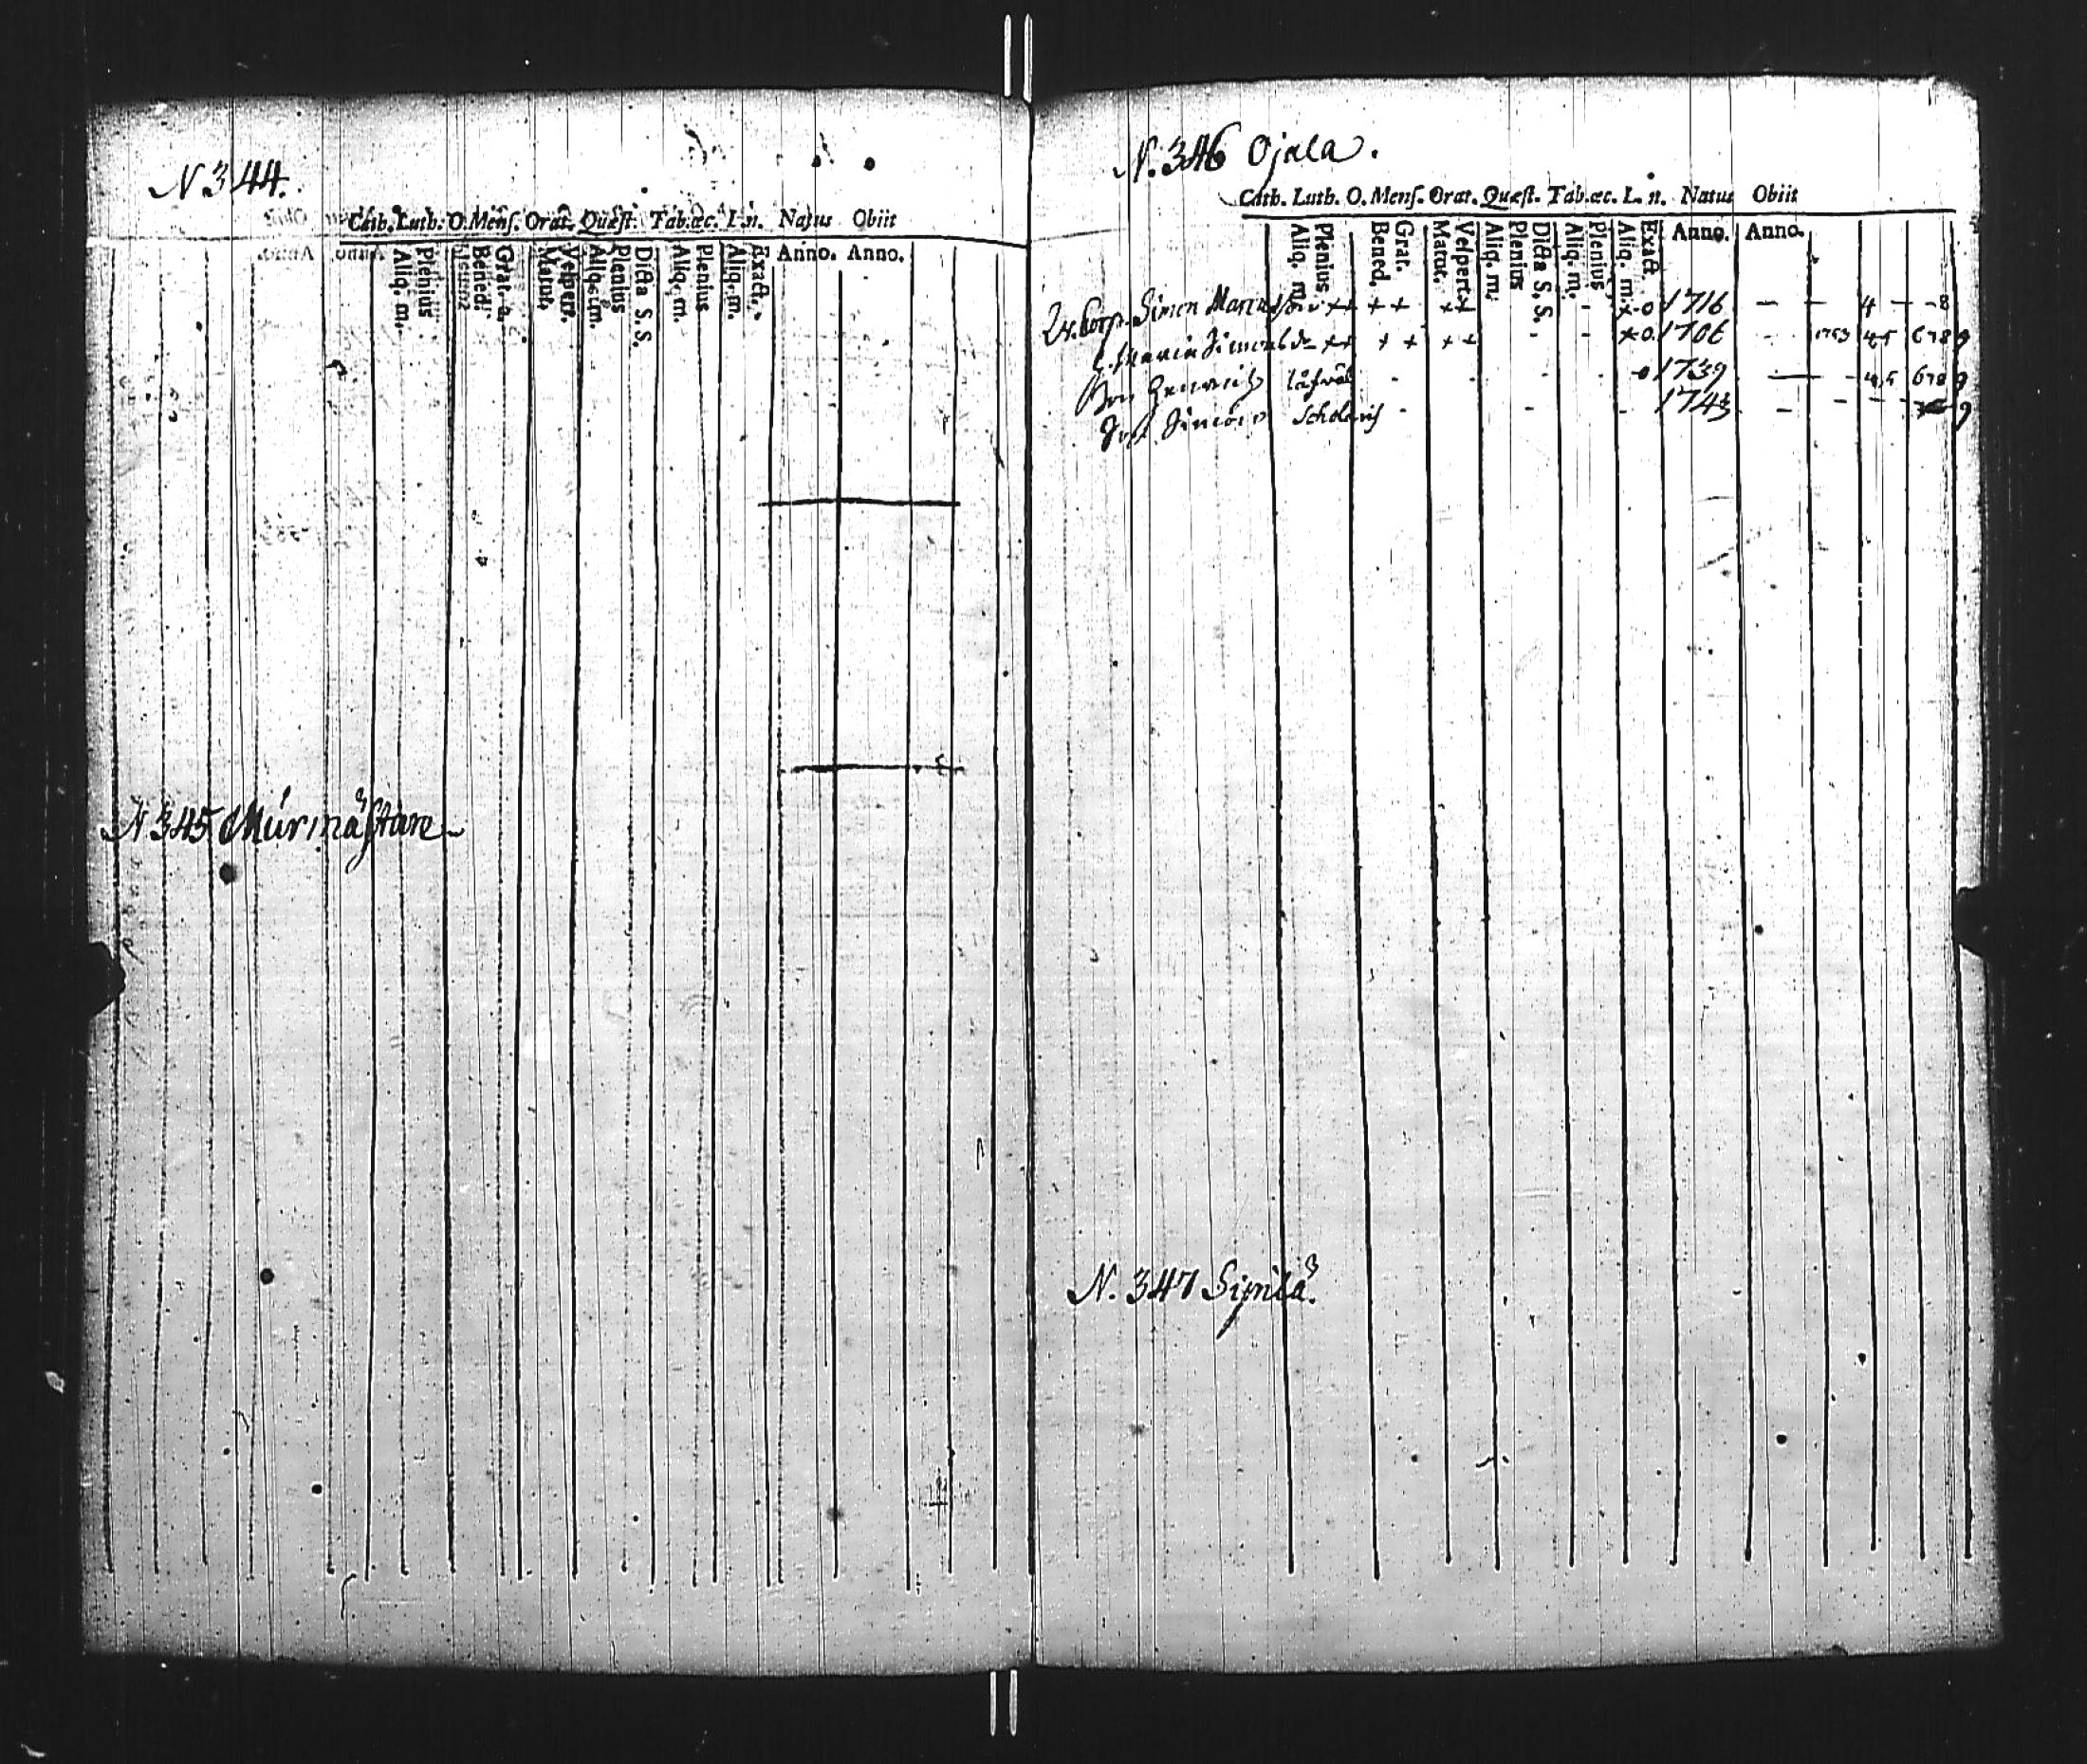 N 344.
Cath. Luth. O. Mens. Orat. Quæst. Tab. œc. I. n. Natus Obiit
Aliq. m. Plenius Bened. Grat. a. Matut. Vespert. Aliq. m. Plenius Dicta S. S. Aliq. m. Plenius Aliq. m. Exact. Anno. Anno.
N 345 Murmästare
N. 346 Ojala.
Cath. Luth. O. Mens. Orat. Quæst. Tab. œc. I. n. Natus Obiit
Aliq. m. Plenius Bened. Grat. Matut. Vespert. Aliq. m. Plenius Dicta S. S. Aliq. m. Plenius Aliq. m. Exact. Anno. Anno.
Simon + + + + + + 1716 — — 4 — 8
Maria + + + + + + - - 1706 - 1753 45 678 9
- - - - 1739 — 45 678 9
- - - 1743 - - - 9
N. 347 Sipilä.